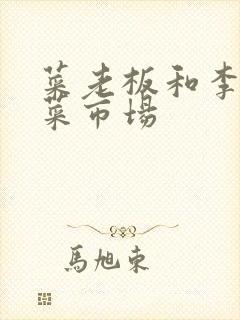 菜老板和李
菜市場
馬旭東